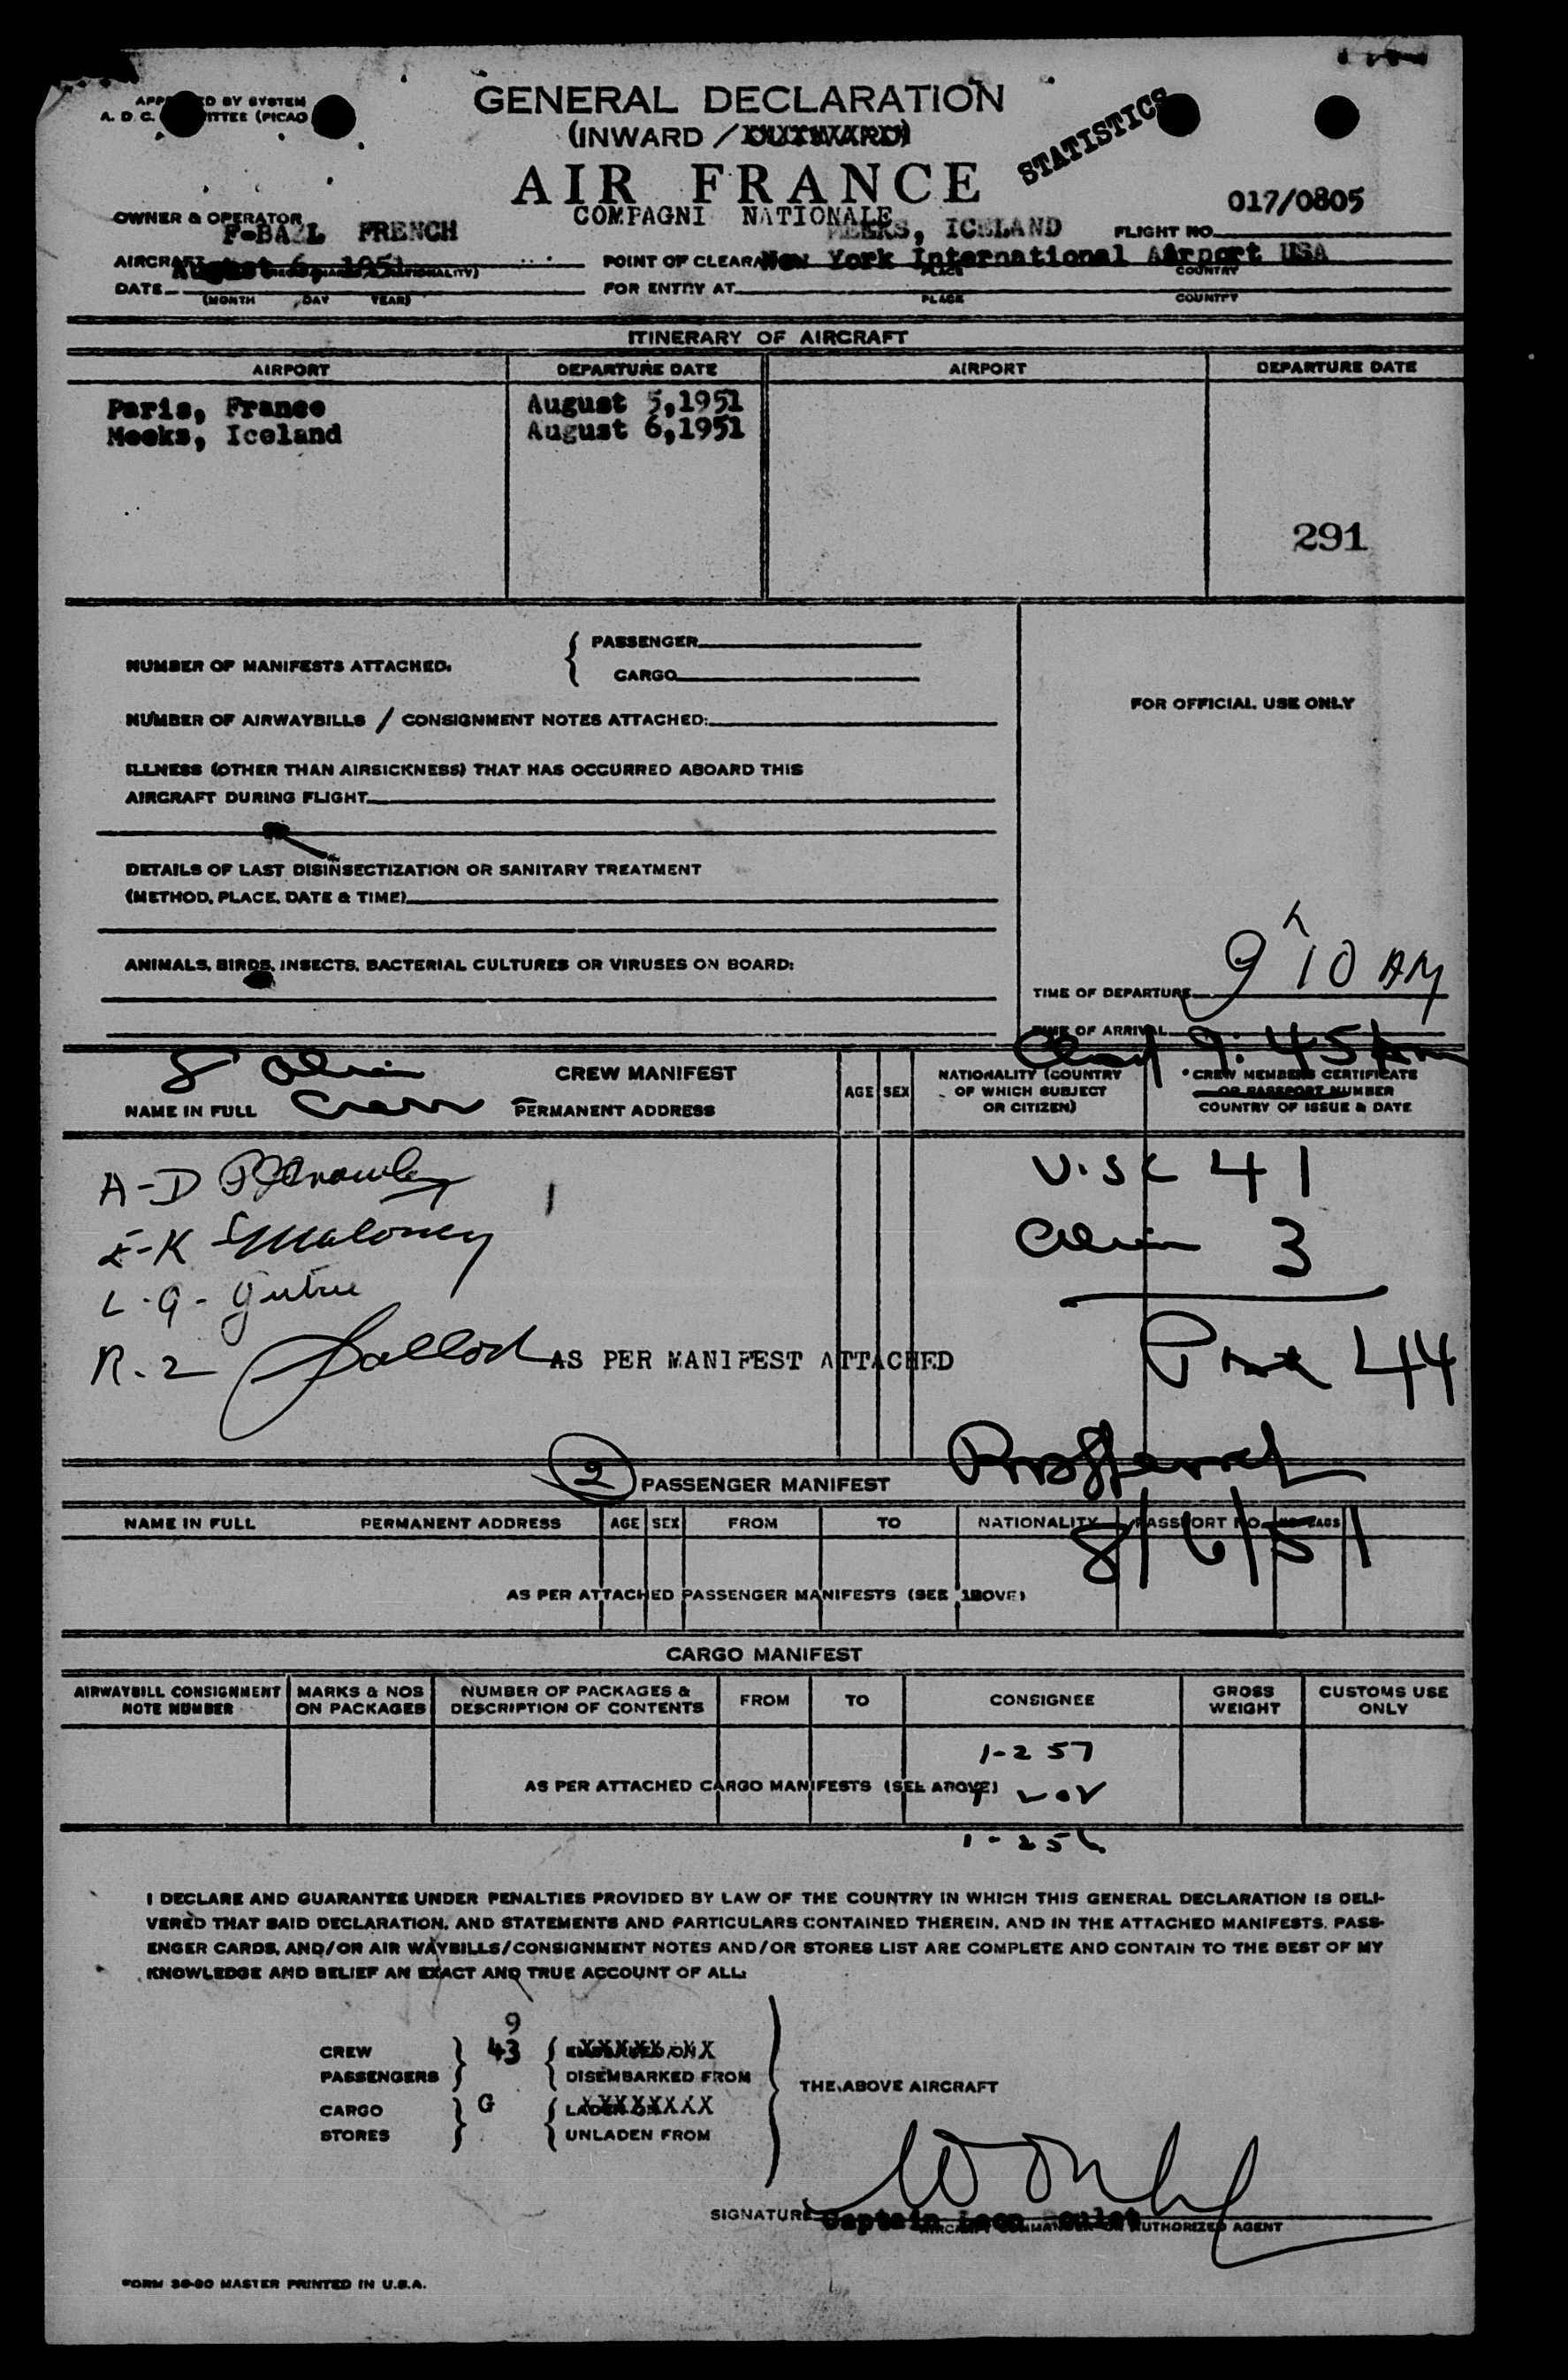 GENERAL DECLARATION
(INWARD / OUTWARD)
STATISTICS
AIR FRANCE
COMPAGNI NATIONALE
017/0805
OWNER & OPERATOR
FRENCH
MEEKS, ICELAND
FLIGHT NO.
AIRCRAFT
August 6, 1951
POINT OF CLEARANCE
New York International Airport USA
PLACE
COUNTRY
DATE
(MONTH DAY YEAR)
FOR ENTRY AT
PLACE
COUNTRY
ITINERARY OF AIRCRAFT
AIRPORT DEPARTURE DATE AIRPORT DEPARTURE DATE
Paris, France August 5,1951
Meeks, Iceland August 6,1951
291
NUMBER OF MANIFESTS ATTACHED.
PASSENGER
CARGO
NUMBER OF AIRWAYBILLS / CONSIGNMENT NOTES ATTACHED:
FOR OFFICIAL USE ONLY
ILLNESS (OTHER THAN AIRSICKNESS) THAT HAS OCCURRED ABOARD THIS
AIRCRAFT DURING FLIGHT
DETAILS OF LAST DISINSECTIZATION OR SANITARY TREATMENT
(METHOD, PLACE, DATE & TIME)
ANIMALS, BIRDS, INSECTS, BACTERIAL CULTURES OR VIRUSES ON BOARD:
TIME OF DEPARTURE 9 h 10 AM
TIME OF ARRIVAL
9:45 Am
8 Alien
Crew
CREW MANIFEST
NAME IN FULL PERMANENT ADDRESS
AGE SEX
NATIONALITY (COUNTRY
OF WHICH SUBJECT
OR CITIZEN)
*CREW MEMBERS CERTIFICATE
OR PASSPORT NUMBER
COUNTRY OF ISSUE & DATE
A-D
U.S.C 41
E-K Maloney
Alien 3
L-Q-
R-Z
AS PER MANIFEST ATTACHED
Pax 44
2
PASSENGER MANIFEST
NAME IN FULL PERMANENT ADDRESS AGE SEX FROM TO NATIONALITY PASSPORT NO.
8/6/51
AS PER ATTACHED PASSENGER MANIFESTS (SEE ABOVE)
CARGO MANIFEST
AIRWAYBILL CONSIGNMENT
NOTE NUMBER
MARKS & NOS
ON PACKAGES
NUMBER OF PACKAGES &
DESCRIPTION OF CONTENTS
FROM TO CONSIGNEE
GROSS
WEIGHT
CUSTOMS USE
ONLY
1-257
AS PER ATTACHED CARGO MANIFESTS (SEE ABOVE)
1-256
I DECLARE AND GUARANTEE UNDER PENALTIES PROVIDED BY LAW OF THE COUNTRY IN WHICH THIS GENERAL DECLARATION IS DELI-
VERED THAT SAID DECLARATION, AND STATEMENTS AND PARTICULARS CONTAINED THEREIN, AND IN THE ATTACHED MANIFESTS, PASS-
ENGER CARDS, AND/OR AIR WAYBILLS/CONSIGNMENT NOTES AND/OR STORES LIST ARE COMPLETE AND CONTAIN TO THE BEST OF MY
KNOWLEDGE AND BELIEF AN EXACT AND TRUE ACCOUNT OF ALL:
CREW 9
PASSENGERS 43
DISEMBARKED FROM
THE ABOVE AIRCRAFT
CARGO G
STORES
UNLADEN FROM
SIGNATURE
Captain Leon
AIRCRAFT COMMANDER OR AUTHORIZED AGENT
FORM 38-80 MASTER PRINTED IN U.S.A.